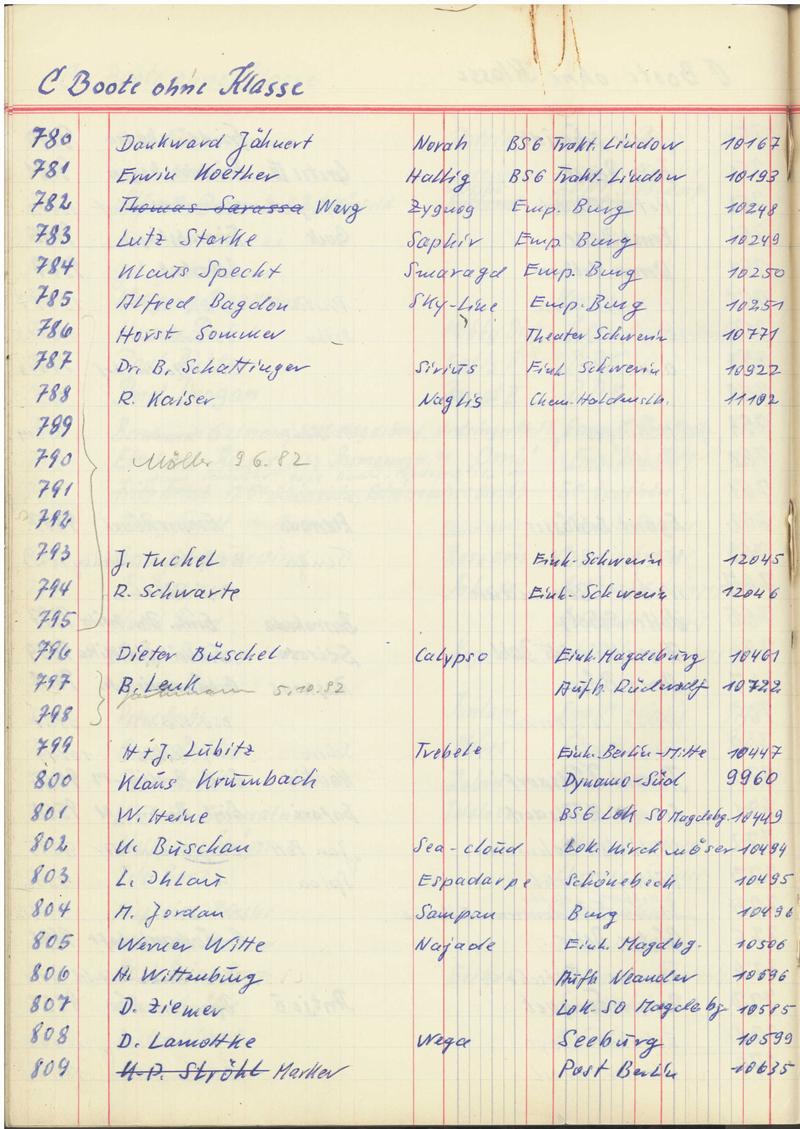 C Boote ohne Klasse
780 Dankward Jähnert Norah BSG Trakt. Lindow 10167
781 Erwin Koether Hallig BSG Trakt. Lindow 10193
782 Thomas Sarassa Warg Zygnog Emp. Burg 10248
783 Lutz Starke Saphir Emp. Burg 10249
784 Klaus Specht Smaragd Emp. Burg 10250
785 Alfred Bagdon Sky-Line Emp. Burg 10251
786 Horst Sommer Theater Schwerin 10771
787 Dr. B. Schattinger Sirius Einh. Schwerin 10922
788 R. Kaiser Naglis Chem. 11102
789
790 Möller 9 6. 82
791
792
793 J. Tuchel Einh.-Schwerin 12045
794 R. Schwarte Einh.-Schwerin 12046
795
796 Dieter Büschel Calypso Einh. Magdeburg 10461
797 B. Lenk 5.10.82 Aufb. Rüdersdf 10722
798
799 H+J. Lubitz Trebele Einh. Berlin-Mitte 10447
800 Klaus Krumbach Dynamo-Süd 9960
801 W. Heine BSG Lok SO Magdebg. 10449
802 U. Buschau Sea-cloud Lok. Kirchmöser 10494
803 L. Ihlau Espadarpe Schönebeck 10495
804 M. Jordan Sampan Burg 10496
805 Werner Witte Najade Einh. Magdbg. 10506
806 H. Wittenburg Aufb Neander 10596
807 D. Ziemer Lok-SO Magdebg 10585
808 D. Lamottke Wega Seeburg 10599
809 H.-P. Ströhl Marker Post Berlin 10635